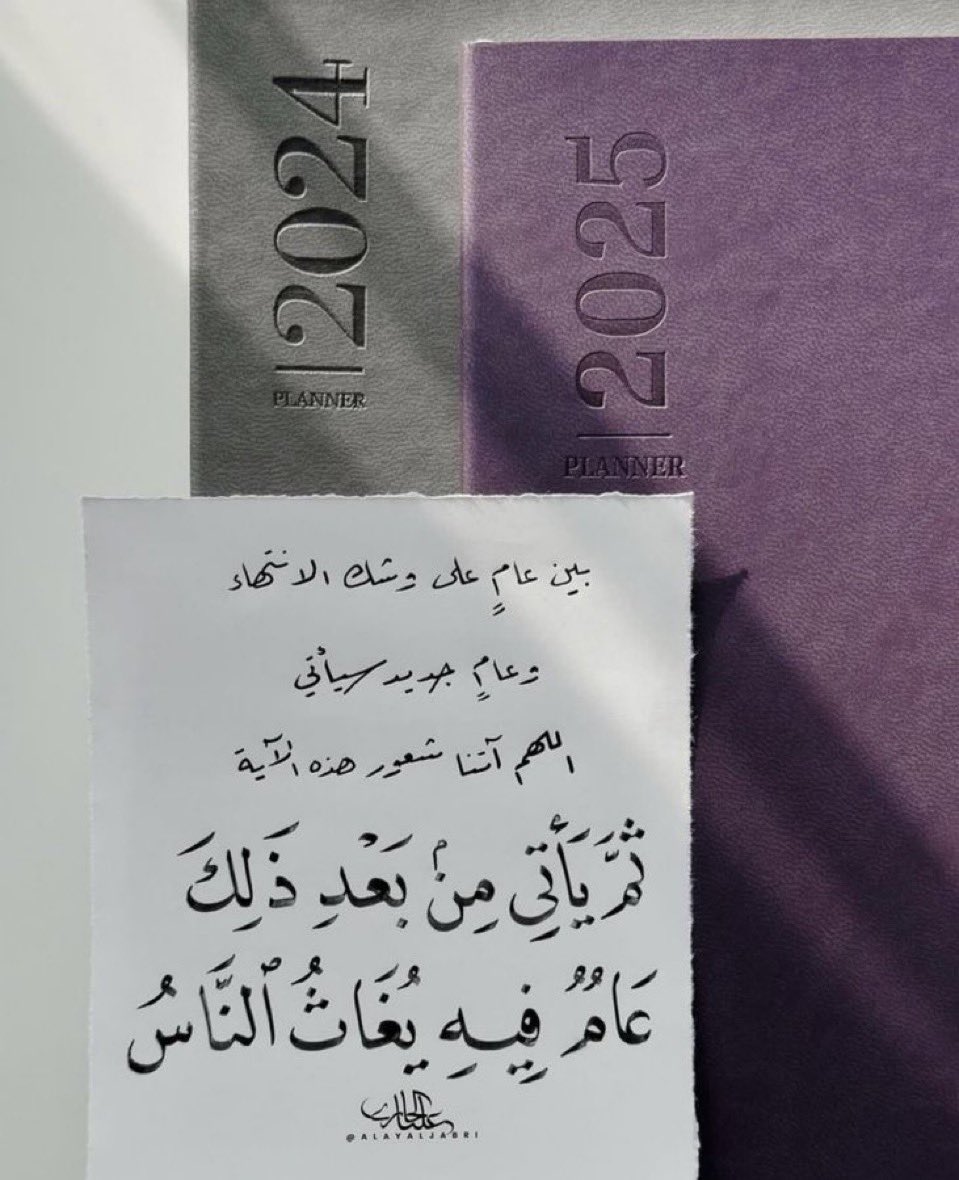 2024
PLANNER
2025
PLANNER
بين عامٍ على وشك الانتهاء
وعامٍ جديد سيأتي
اللهم آتنا شعور هذه الآية
ثُمَّ يَأْتِى مِنۢ بَعْدِ ذَٰلِكَ
عَامٌۭ فِيهِ يُغَاثُ ٱلنَّاسُ
@ALAYALJABRI